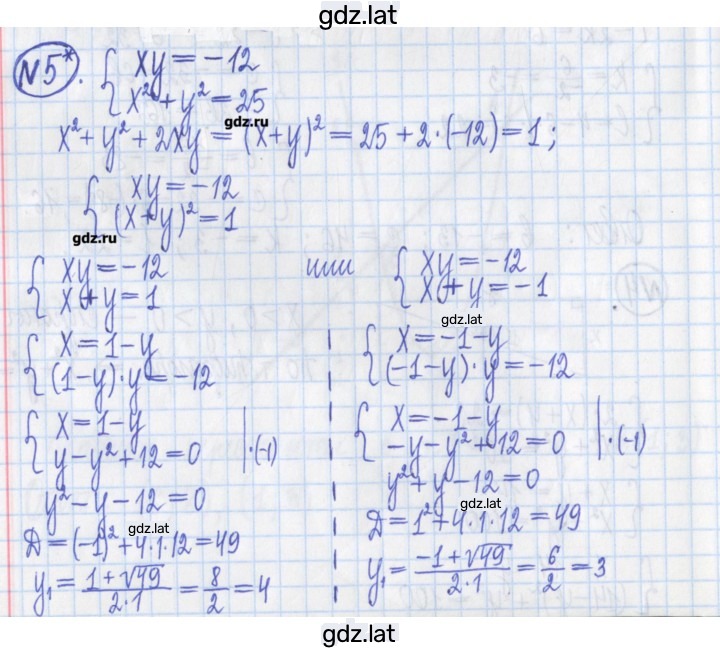 gdz.lat
N5*. { xy = -12
{ x² + y² = 25
gdz.ru
x² + y² + 2xy = (x+y)² = 25 + 2·(-12) = 1;
{ xy = -12
{ (x+y)² = 1
gdz.ru
{ xy = -12
{ x + y = 1
или
{ xy = -12
{ x + y = -1
gdz.lat
{ x = 1-y
{ (1-y)·y = -12
{ x = 1-y
{ y - y² + 12 = 0 |·(-1)
y² - y - 12 = 0
gdz.lat
D = (-1)² + 4·1·12 = 49
y₁ = (1+√49)/(2·1) = 8/2 = 4
{ x = -1-y
{ (-1-y)·y = -12
{ x = -1-y
{ -y - y² + 12 = 0 |·(-1)
y² + y - 12 = 0
gdz.lat
D = 1² + 4·1·12 = 49
y₁ = (-1+√49)/(2·1) = 6/2 = 3
gdz.lat